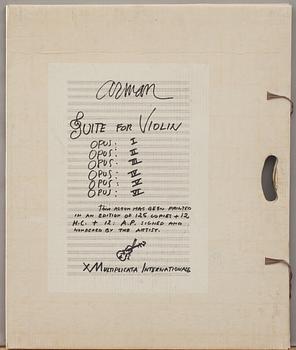 arman
SUITE FOR VIOLIN
OPUS: I
OPUS: II
OPUS: III
OPUS: IV
OPUS: V
OPUS: VI
THIS ALBUM HAS BEEN PRINTED
IN AN EDITION OF 125 COPIES + 12
H.C. + 12: A.P. SIGNED AND
NUMBERED BY THE ARTIST.
X MULTIPLICATA INTERNATIONALE